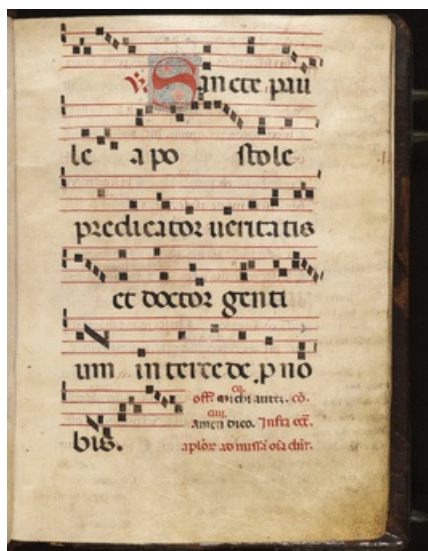 ℣. Sancte pau
le apo stole
predicator ueritatis
et doctor genti
um intercede p no
bis.
off. michi autem. co.
amen dico. Infra oct.
aplor ad missā oīa dnr.